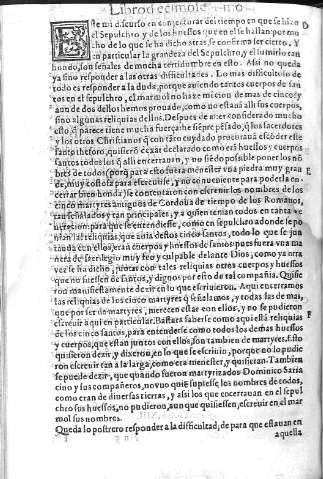 Libro decimoseptimo
Este mi discurso en conjecturar del tiempo en que se hizo
el Sepulchro y de los huessos que en el se hallan por mu
cho de lo que se ha dicho atras se confirma ser cierto, Y
en particular la grandeza del Sepulchro, y el hundirlo tan
hondo, son señales de mucha certidumbre en esto. Assi no queda
ya sino responder a las otras difficultades. Lo mas difficultoso de
todo es responder a la duda, porque auiendo tantos cuerpos de san
tos en el sepulchro, el marmol no haze mecion de mas de cinco? y
aun de dos dellos hemos prouado, como no estauã alli sus cuerpos,
sino algunas reliquias dellos. Despues de auer considerado mucho
esto, q̃ parece tiene mucha fuerça he siẽpre pẽsado, q̃ los sacerdotes
y los otros Christianos q̃ con tãto cuydado procurauã escõder el se
santos todos los q̃ alli encerrauan, y no siẽdo posible poner los nõ
bres de todos (porq̃ para esto fuera menester vna piedra muy gran
de, muy costosa para escreuirse, y no conueniente para poderla en
cerrar bien honda) se contentaron con escreuir los nombres de los
cinco martyres antiguos de Cordoua de tiempo de los Romanos,
tan señalados y tan principales, y a quien tenian todos en tanta ve
neracion: para que se entendiesse, como en sepulchro donde se po
nian las reliquias, que auia destos cinco Santos, todo lo que se jun
taua con ellos eran cuerpos y huessos de santos pues fuera vna ma
nera de sacrilegio muy feo y culpable delante Dios, como ya otra
vez se ha dicho, juntar con tales reliquias otros cuerpos y huessos
que no fuessen de santos, y dignos por esto de tal compañia. Quisie
ron manifiestamente dezir en lo que escriuieron. Aqui encerramos
las reliquias de los cinco martyres q̃ señalamos, y todas las de mas,
que por ser de martyres, merecen estar con ellos, y no se pudieron
escreuir aqui en particular. Bastara saberse como aqui estã reliquias
de los cinco santos, para entenderse como todos los demas huessos
y cuerpos, que estan juntos con ellos, son tambien de martyres. Esto
quisieron dezir, y dixeron, en lo que se escriuio, porque no lo pudie
ron escreuir tan a la larga, como era menester, y quisieran. Tambien
se puede dezir, que quando fueron martyrizados Dominico Saria
cino y sus compañeros, no vuo quiẽ supiesse los nombres de todos,
como eran de diuersas tierras, y assi los que encerrauan en el sepul
chro sus huessos, no pudieron, aun que quisiessen, escreuir en el mar
mol sus nombres.
Queda lo postrero responder a la difficultad, de para que estauan en
aquella